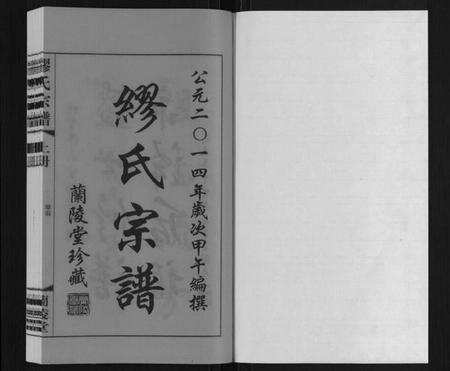 公元二〇一四年歲次甲午編撰
繆氏宗譜
蘭陵堂珍藏
繆氏宗譜
上册
蘭陵堂